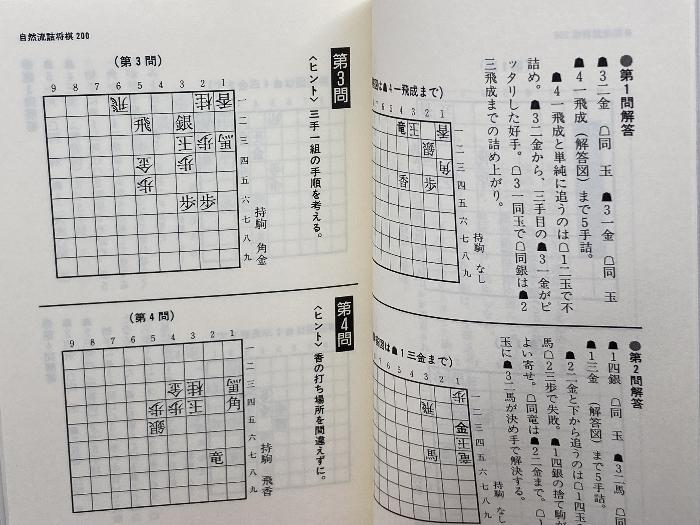 ●第1問解答
☗3二金 ☖同 玉 ☗3一金 ☖同 玉
☗4一飛成（解答図）まで5手詰。
☗4一飛成と単純に追うのは☖1二玉で不
詰め。☗3二金から、三手目の☗3一金がピ
ッタリした好手。☖3一同玉で☖同銀は☗2
三飛成までの詰め上がり。
図は☗4一飛成まで）
一
二
三
四
五
六
七
八
九
持駒 なし
●第2問解答
☗1四銀 ☖同 玉 ☗3二馬 ☖同
☗1三金 （解答図）まで5手詰。
☗2二金と下から追うのは☖1四玉
馬☖2三歩で失敗。☗1四銀の捨て駒が
よい寄せ。☖同竜は☗2二金まで。☖
玉に☗3二馬が決め手で解決する。
図は☗1三金まで）
一
二
三
四
五
六
七
八
九
持駒 なし
自然流詰将棋 200
第3問
〈ヒント〉三手一組の手順を考える。
（第3問）
9 8 7 6 5 4 3 2 1
飛 桂 香 一
飛 銀 二
玉 歩 馬 三
金 歩 四
歩 五
歩 歩 六
七
八
九
持駒 角金
第4問
〈ヒント〉香の打ち場所を間違えずに。
（第4問）
9 8 7 6 5 4 3 2 1
一
二
金 桂 馬 三
歩 歩 玉 角 四
銀 五
六
竜 七
八
九
持駒 飛香